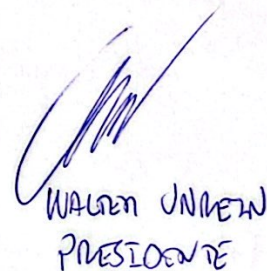 WALTER UNREIN
PRESIDENTE